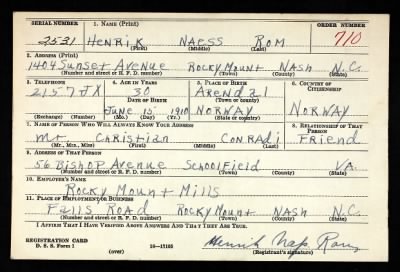 SERIAL NUMBER 1. NAME (Print) ORDER NUMBER
2531 HENRIK NAESS ROM 710
(First) (Middle) (Last)
2. ADDRESS (Print)
1404 Sunset Avenue Rocky Mount Nash N.C.
(Number and street or R. F. D. number) (Town) (County) (State)
3. TELEPHONE 4. AGE IN YEARS 5. PLACE OF BIRTH 6. COUNTRY OF CITIZENSHIP
2157JX 30 Arendal
DATE OF BIRTH (Town or county)
June 15 1910 NORWAY NORWAY
(Exchange) (Number) (Mo.) (Day) (Yr.) (State or country)
7. NAME OF PERSON WHO WILL ALWAYS KNOW YOUR ADDRESS 8. RELATIONSHIP OF THAT PERSON
Mr Christian Conradi Friend
(Mr., Mrs., Miss) (First) (Middle) (Last)
9. ADDRESS OF THAT PERSON
56 Bishop Avenue Schoolfield VA.
(Number and street or R. F. D. number) (Town) (County) (State)
10. EMPLOYER'S NAME
Rocky Mount Mills
11. PLACE OF EMPLOYMENT OR BUSINESS
Falls Road Rocky Mount Nash N.C.
(Number and street or R. F. D. number) (Town) (County) (State)
I AFFIRM THAT I HAVE VERIFIED ABOVE ANSWERS AND THAT THEY ARE TRUE.
REGISTRATION CARD
D. S. S. Form 1 (over) 16—17105 Henrik Naess Rom
(Registrant's signature)